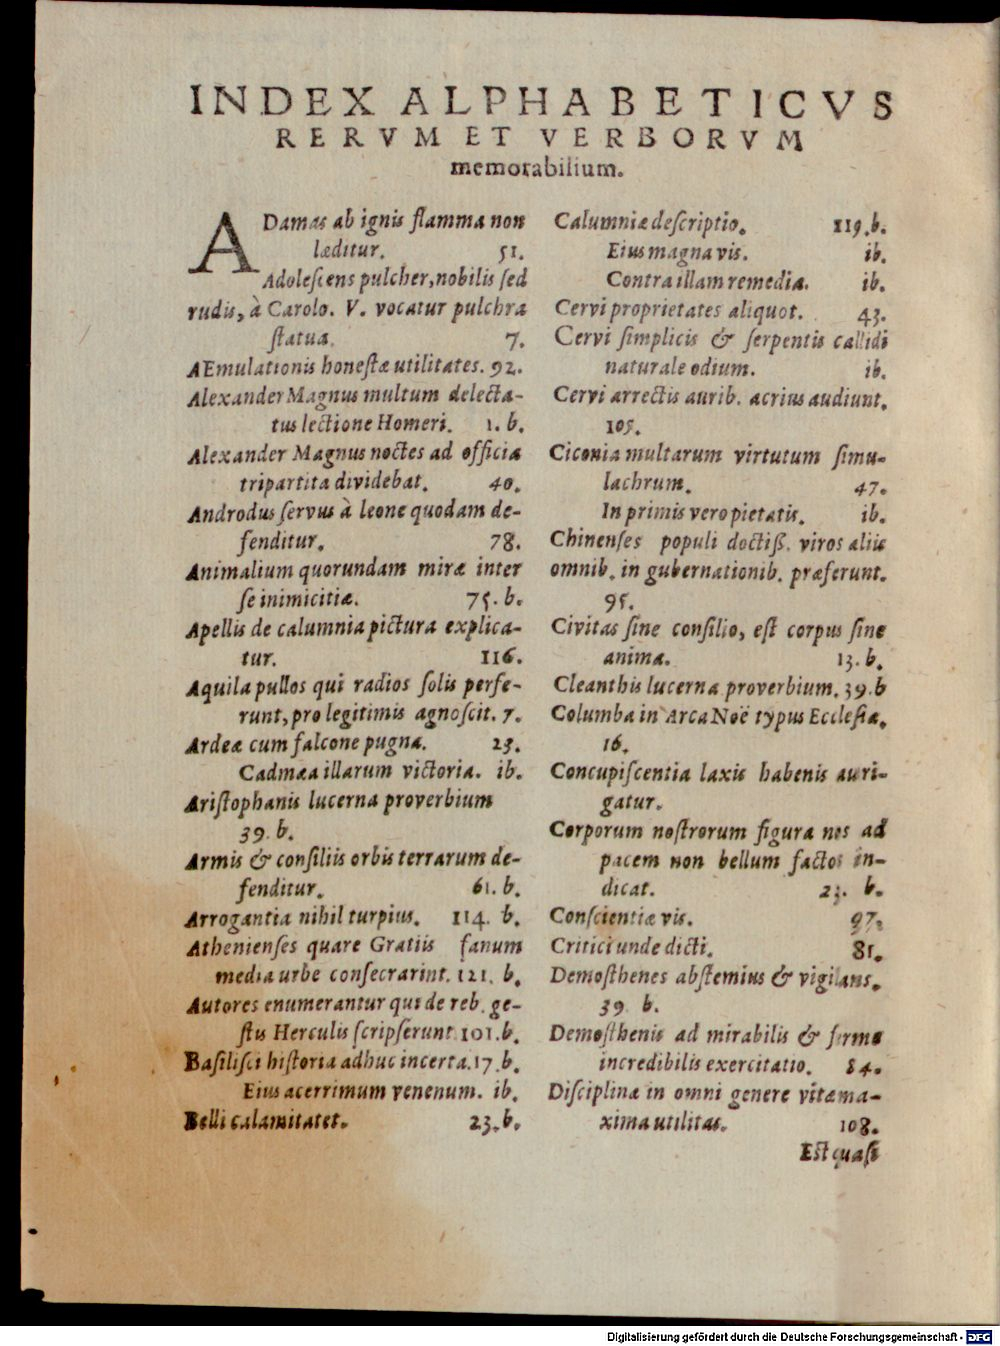 INDEX ALPHABETICVS
RERVM ET VERBORVM
memorabilium.
ADamas ab ignis flamma non
læditur. 51.
Adoleſcens pulcher, nobilis ſed
rudis, à Carolo. V. vocatur pulchra
ſtatua. 7.
AEmulationis honeſtæ utilitates. 92.
Alexander Magnus multum delecta-
tus lectione Homeri. 1. b.
Alexander Magnus noctes ad officia
tripartita dividebat. 40.
Androdus ſervus à leone quodam de-
fenditur. 78.
Animalium quorundam miræ inter
ſe inimicitiæ. 75. b.
Apellis de calumnia pictura explica-
tur. 116.
Aquila pullos qui radios ſolis perfe-
runt, pro legitimis agnoſcit. 7.
Ardeæ cum falcone pugna. 23.
Cadmæa illarum victoria. ib.
Ariſtophanis lucerna proverbium
39. b.
Armis & conſiliis orbis terrarum de-
fenditur. 61. b.
Arrogantia nihil turpius. 114. b.
Athenienſes quare Gratiis fanum
media urbe conſecrarint. 121. b.
Autores enumerantur qui de reb. ge-
ſtis Herculis ſcripſerunt 101. b.
Baſiliſci hiſtoria adhuc incerta. 17. b.
Eius acerrimum venenum. ib.
Belli calamitates. 23. b.
Calumniæ deſcriptio. 119. b.
Eius magna vis. ib.
Contra illam remedia. ib.
Cervi proprietates aliquot. 43.
Cervi ſimplicis & ſerpentis callidi
naturale odium. ib.
Cervi arrectis aurib. acrius audiunt.
105.
Ciconia multarum virtutum ſimu-
lachrum. 47.
In primis vero pietatis. ib.
Chinenſes populi doctiß. viros aliis
omnib. in gubernationib. præferunt.
95.
Civitas ſine conſilio, eſt corpus ſine
anima. 13. b.
Cleanthis lucerna proverbium. 39. b
Columba in Arca Noë typus Eccleſiæ.
16.
Concupiſcentia laxis habenis auri-
gatur.
Corporum noſtrorum figura nos ad
pacem non bellum factos in-
dicat. 23. b.
Conſcientiæ vis. 97.
Critici unde dicti. 81.
Demoſthenes abſtemius & vigilans.
39. b.
Demoſthenis ad mirabilis & ferme
incredibilis exercitatio. 84.
Diſciplinæ in omni genere vitæ ma-
xima utilitas. 108.
Eſt quaſi
Digitalisierung gefördert durch die Deutsche Forschungsgemeinschaft - DFG